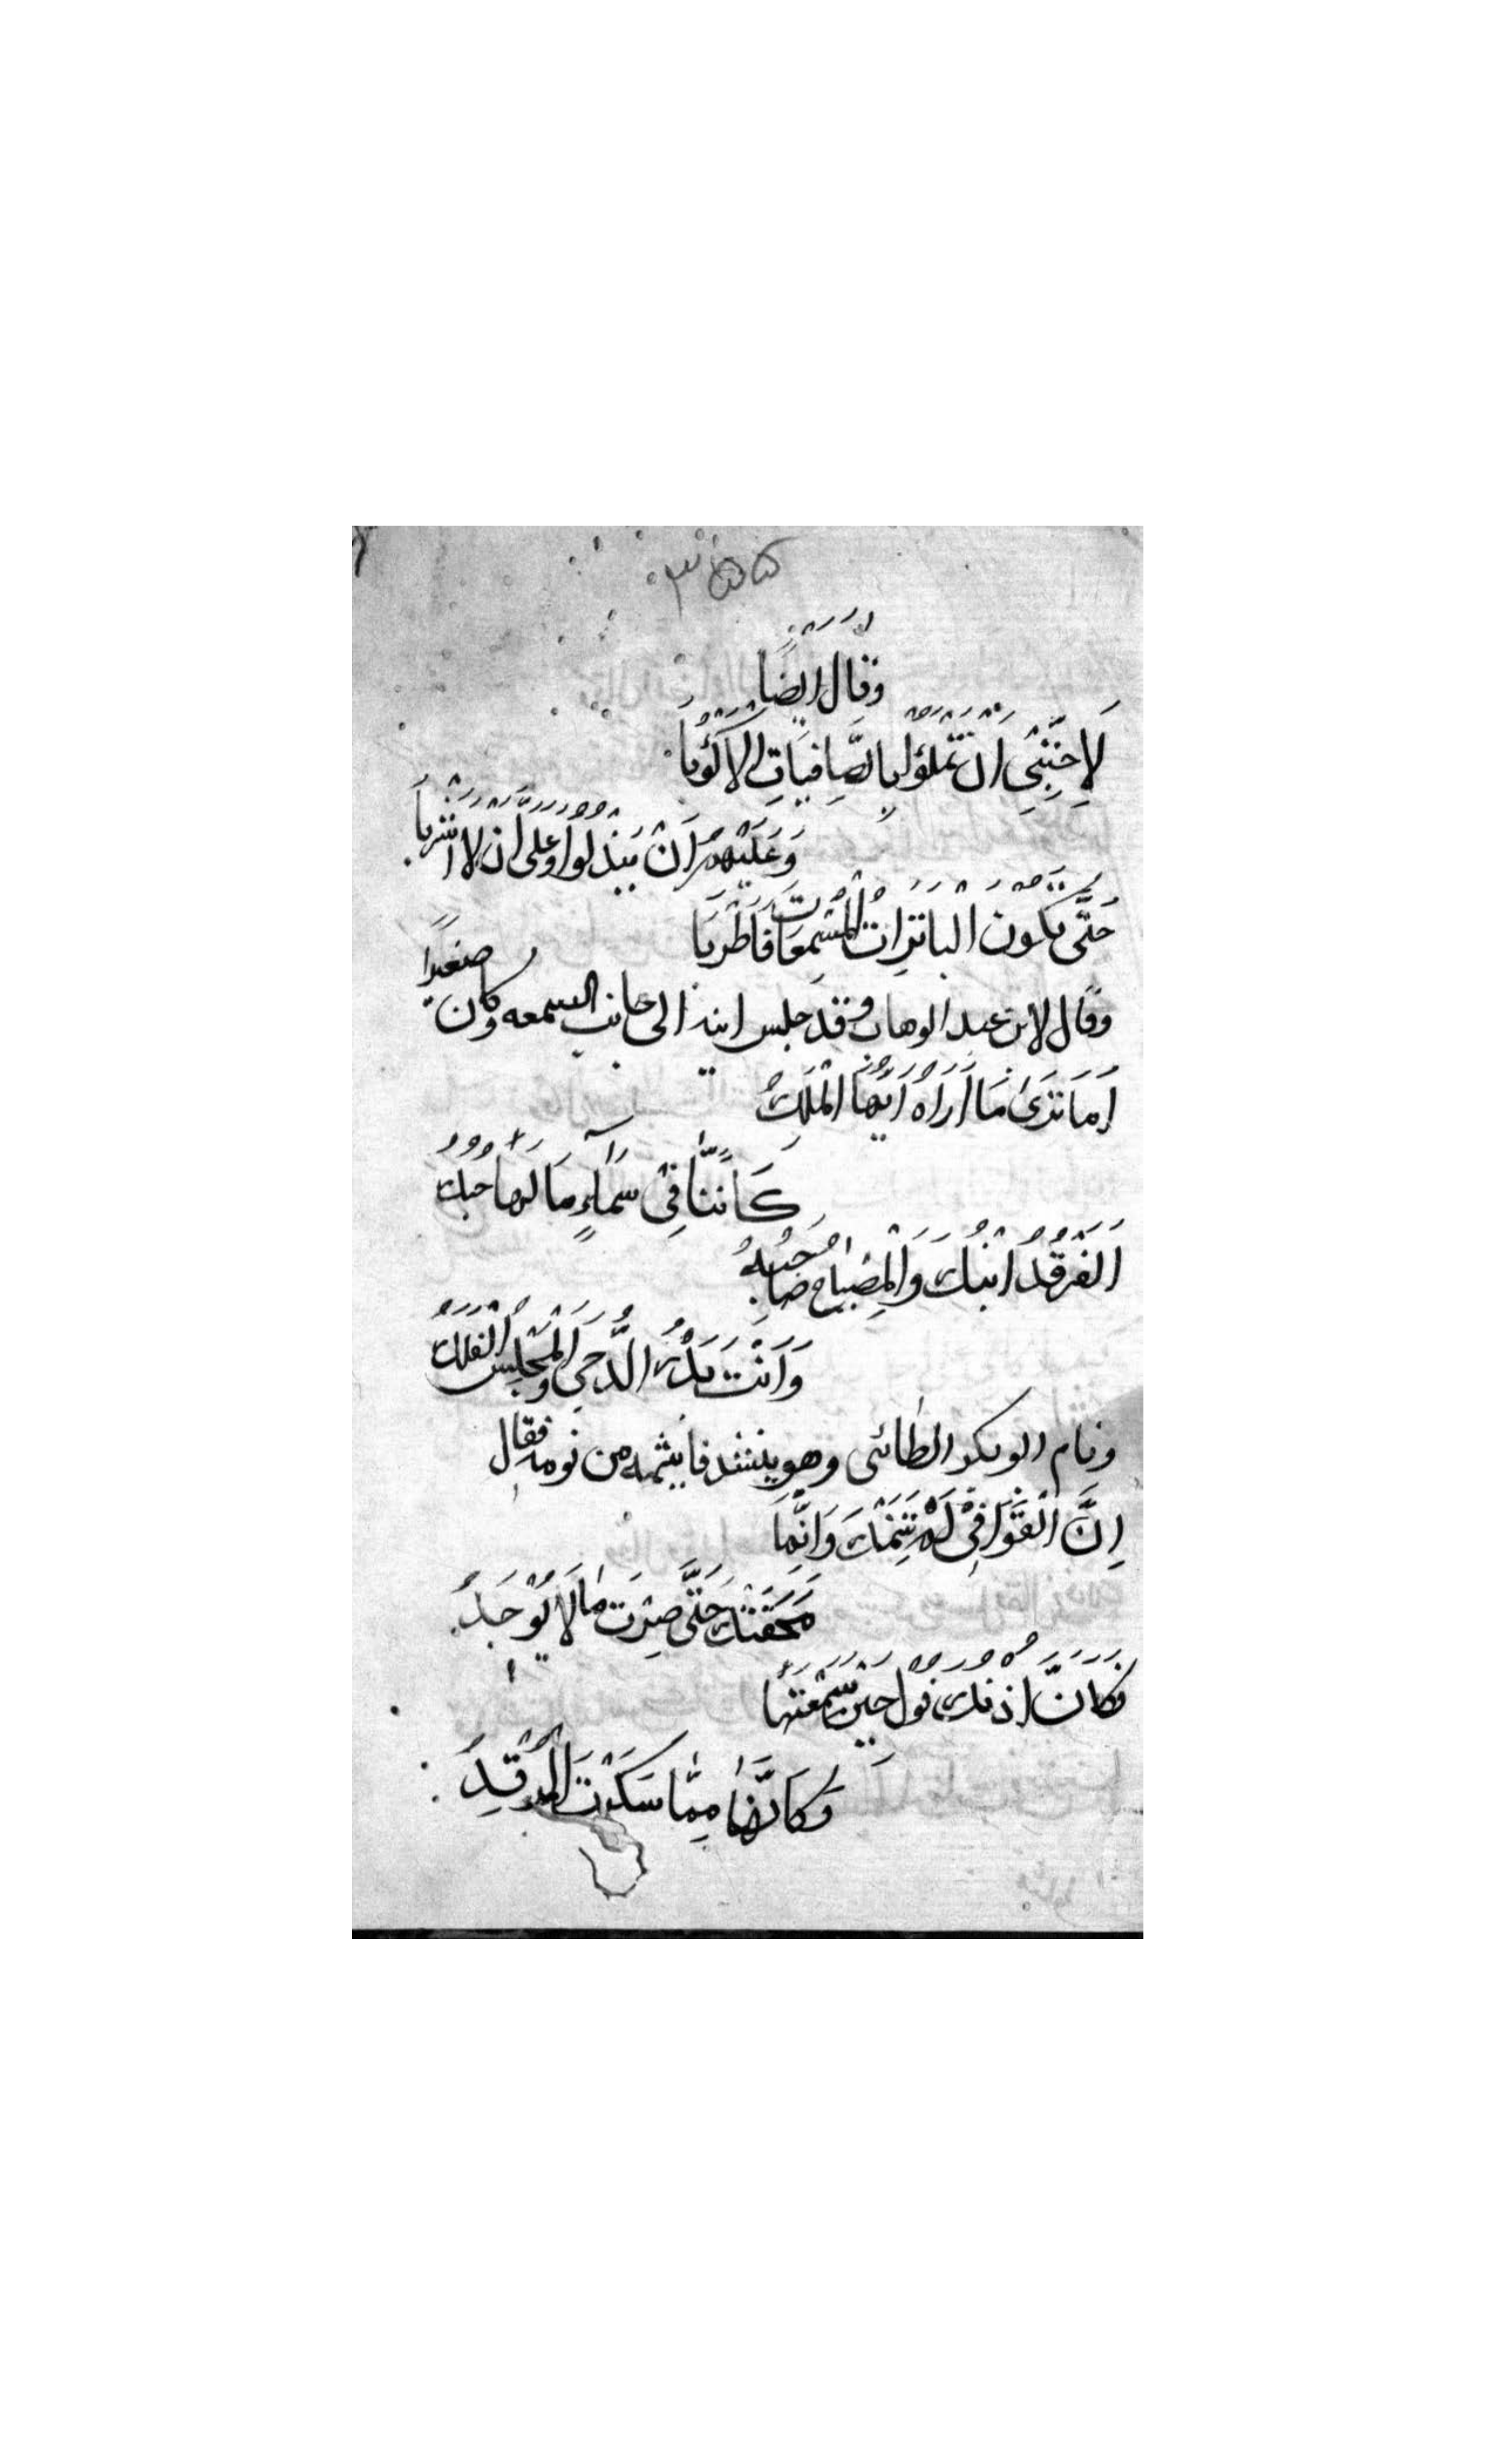 وَقَال ايضًا
لِاحِبَّتِي اَنْ تَمْلَؤُا بِالصَّافِيَاتِ الاَكْؤُبَا
وَعَلَيْهِمْ اَنْ يَبْذُلُوا وَعَلَى اَنْ لا اَشْرَبَا
حَتَّى تَكُونَ الْبَاتِرَاتُ الْمُسْمِعَاتُ فَاَطْرَبَا
وقَال لابن عبد الوهاب وقد جلس ابنه الى جانب الشمعه وكان صغيرًا
اَمَا تَرَى مَا اَرَاهُ اَيُّهَا الْمَلِكُ
كَاَنَّنَا فِي سَمَاءٍ مَا لَهَا حُبُكُ
اَلْفَرْقَدُ ابْنُكَ وَالْمِصْبَاحُ صَاحِبُهُ
وَاَنْتَ بَدْرُ الدُّجَى وَالْمَجْلِسُ الْفَلَكُ
ونام ابو بكر الطائي وهو ينشد فانبهه من نومه فقال
اِنَّ الْقَوَافِيَ لَمْ تُنِمْكَ وَاِنَّمَا
مَحَقَتْكَ حَتَّى صِرْتَ مَا لَا يُوْجَدُ
فَكَاَنَّ اُذْنَكَ فُوْكَ حِيْنَ سَمِعْتَهَا
وَكَاَنَّهَا مِمَّا سَكِرْتَ الْمُرْقِدُ